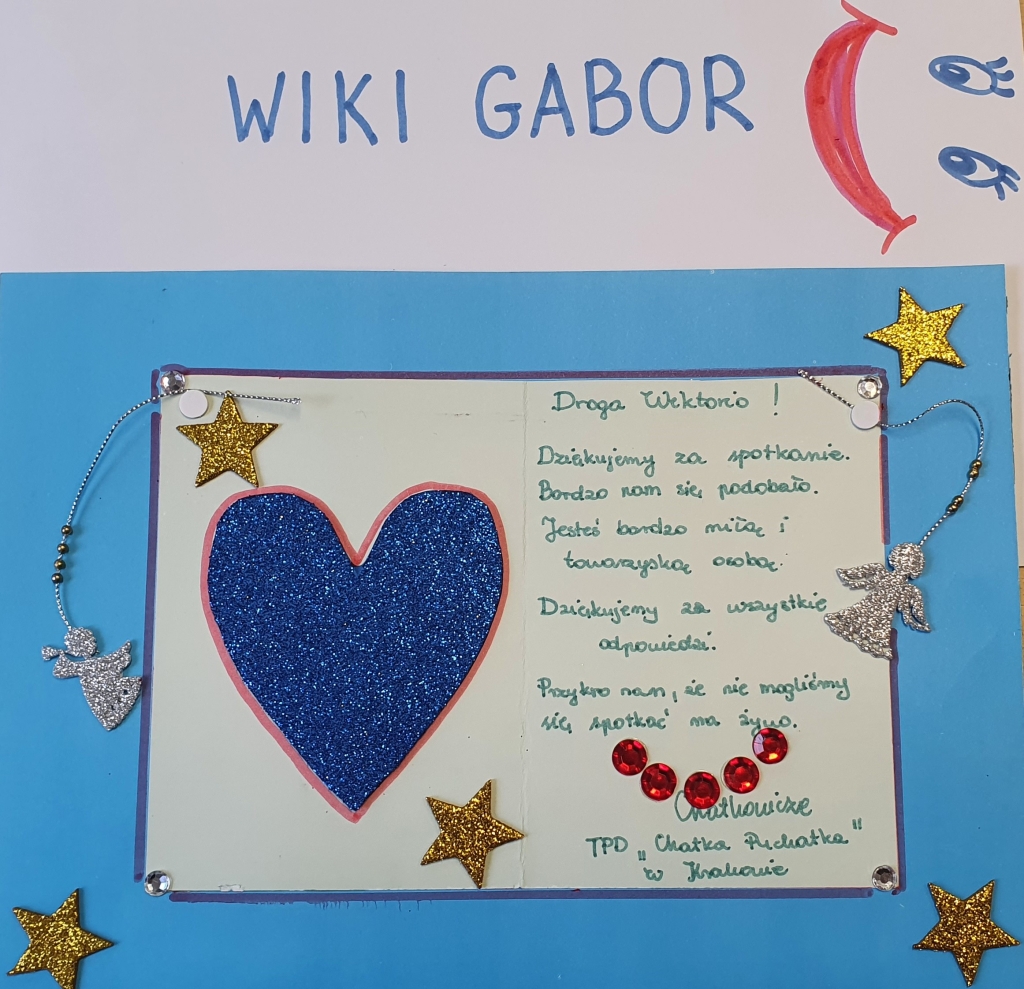 WIKI GABOR
Droga Wiktorio !
Dziękujemy za spotkanie.
Bardzo nam się podobało.
Jesteś bardzo miłą i
towarzyską osobą.
Dziękujemy za wszystkie
odpowiedzi.
Przykro nam, że nie mogliśmy
się spotkać na żywo.
Chatkowicze
TPD "Chatka Puchatka"
w Krakowie